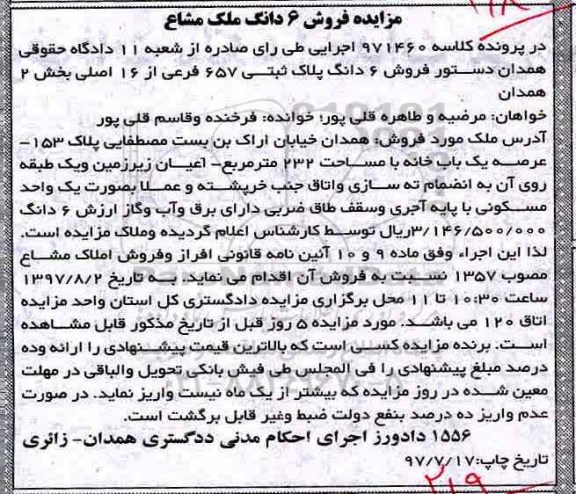 مزایده فروش ۶ دانگ ملک مشاع
در پرونده کلاسه ۹۷۱۴۶۰ اجرایی طی رای صادره از شعبه ۱۱ دادگاه حقوقی
همدان دستور فروش ۶ دانگ پلاک ثبتی ۶۵۷ فرعی از ۱۶ اصلی بخش ۲
همدان
خواهان: مرضیه و طاهره قلی پور؛ خوانده: فرخنده وقاسم قلی پور
آدرس ملک مورد فروش: همدان خیابان اراک بن بست مصطفایی پلاک ۱۵۳-
عرصه یک باب خانه با مساحت ۲۳۲ مترمربع- اعیان زیرزمین ویک طبقه
روی آن به انضمام ته سازی واتاق جنب خرپشته و عملا بصورت یک واحد
مسکونی با پایه آجری وسقف طاق ضربی دارای برق وآب وگاز ارزش ۶ دانگ
۳/۱۴۶/۵۰۰/۰۰۰ریال توسط کارشناس اعلام گردیده وملاک مزایده است.
لذا این اجراء وفق ماده ۹ و ۱۰ آئین نامه قانونی افراز وفروش املاک مشاع
مصوب ۱۳۵۷ نسبت به فروش آن اقدام می نماید. به تاریخ ۱۳۹۷/۸/۲
ساعت ۱۰:۳۰ تا ۱۱ محل برگزاری مزایده دادگستری کل استان واحد مزایده
اتاق ۱۲۰ می باشد. مورد مزایده ۵ روز قبل از تاریخ مذکور قابل مشاهده
است. برنده مزایده کسی است که بالاترین قیمت پیشنهادی را ارائه وده
درصد مبلغ پیشنهادی را فی المجلس طی فیش بانکی تحویل والباقی در مهلت
معین شده در روز مزایده که بیشتر از یک ماه نیست واریز نماید. در صورت
عدم واریز ده درصد بنفع دولت ضبط وغیر قابل برگشت است.
۱۵۵۶ دادورز اجرای احکام مدنی ددگستری همدان- زائری
تاریخ چاپ:۹۷/۷/۱۷
۲۱۹